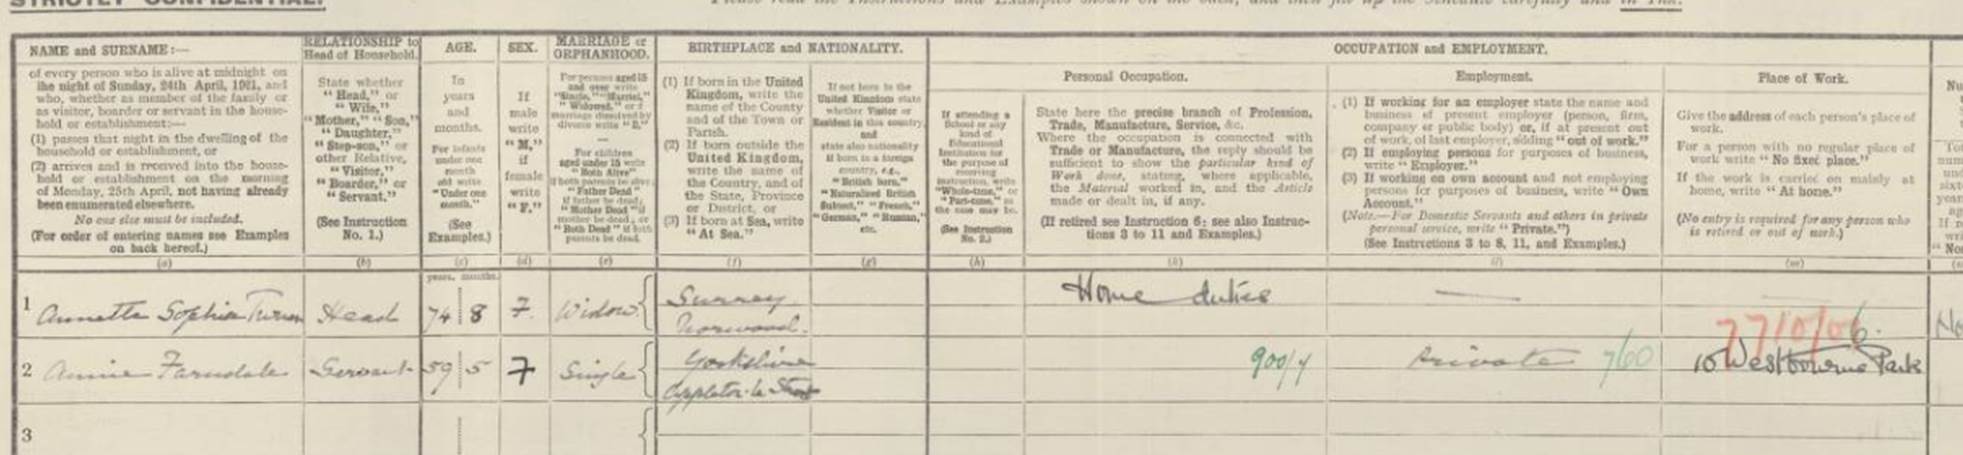 STRICTLY CONFIDENTIAL.
Please read the Instructions and Examples shown on the back, and then fill up the Schedule carefully and in Ink.
NAME and SURNAME:—
of every person who is alive at midnight on
the night of Sunday, 24th April, 1921, and
who, whether as member of the family or
as visitor, boarder or servant in the house-
hold or establishment:—
(1) passes that night in the dwelling of the
household or establishment, or
(2) arrives and is received into the house-
hold or establishment on the morning
of Monday, 25th April, not having already
been enumerated elsewhere.
No one else must be included.
(For order of entering names see Examples
on back hereof.)
(a)
RELATIONSHIP to
Head of Household.
State whether
"Head," or
"Wife,"
"Mother," "Son,"
"Daughter,"
"Step-son," or
other Relative,
"Visitor,"
"Boarder," or
"Servant."
(See Instruction
No. 1.)
(b)
AGE.
In
years
and
months.
For infants
under one
month
old write
"Under one
month."
(See
Examples.)
(c)
SEX.
If
male
write
"M,"
if
female
write
"F."
(d)
MARRIAGE or
ORPHANHOOD.
For persons aged 15
and over write
"Single," "Married,"
"Widowed," or if
marriage dissolved by
divorce write "D."
For children
aged under 15 write
"Both Alive"
if both parents be alive;
"Father Dead"
if father be dead;
"Mother Dead" if
mother be dead; or
"Both Dead" if both
parents be dead.
(e)
BIRTHPLACE and NATIONALITY.
(1) If born in the United
Kingdom, write the
name of the County
and of the Town or
Parish.
(2) If born outside the
United Kingdom,
write the name of
the Country, and of
the State, Province
or District, or
(3) If born at Sea, write
"At Sea."
(f)
If not born in the
United Kingdom state
whether Visitor or
Resident in this country,
and
state also nationality
if born in a foreign
country, e.g.,
"British born,"
"Naturalised British
Subject," "French,"
"German," "Russian,"
etc.
(g)
OCCUPATION and EMPLOYMENT.
If attending a
School or any
kind of
Educational
Institution for
the purpose of
receiving
instruction, write
"Whole-time," or
"Part-time," as
the case may be.
(See Instruction
No. 2.)
(h)
Personal Occupation.
State here the precise branch of Profession,
Trade, Manufacture, Service, &c.
Where the occupation is connected with
Trade or Manufacture, the reply should be
sufficient to show the particular kind of
Work done, stating, where applicable,
the Material worked in, and the Article
made or dealt in, if any.
(If retired see Instruction 6; see also Instruc-
tions 3 to 11 and Examples.)
(k)
Employment.
(1) If working for an employer state the name and
business of present employer (person, firm,
company or public body) or, if at present out
of work, of last employer, adding "out of work."
(2) If employing persons for purposes of business,
write "Employer."
(3) If working on own account and not employing
persons for purposes of business, write "Own
Account."
(Note.—For Domestic Servants and others in private
personal service, write "Private.")
(See Instructions 3 to 8, 11, and Examples.)
(l)
Place of Work.
Give the address of each person's place of
work.
For a person with no regular place of
work write "No fixed place."
If the work is carried on mainly at
home, write "At home."
(No entry is required for any person who
is retired or out of work.)
(m)
years. months.
1 Annette Sophia Turner Head 74 8 F. Widow Surrey Norwood. Home duties —
77/0/06.
2 Annie Farndale Servant 59 5 F Single Yorkshire Appleton-le-Street 900/4 Private 760 10 Westbourne Park
3